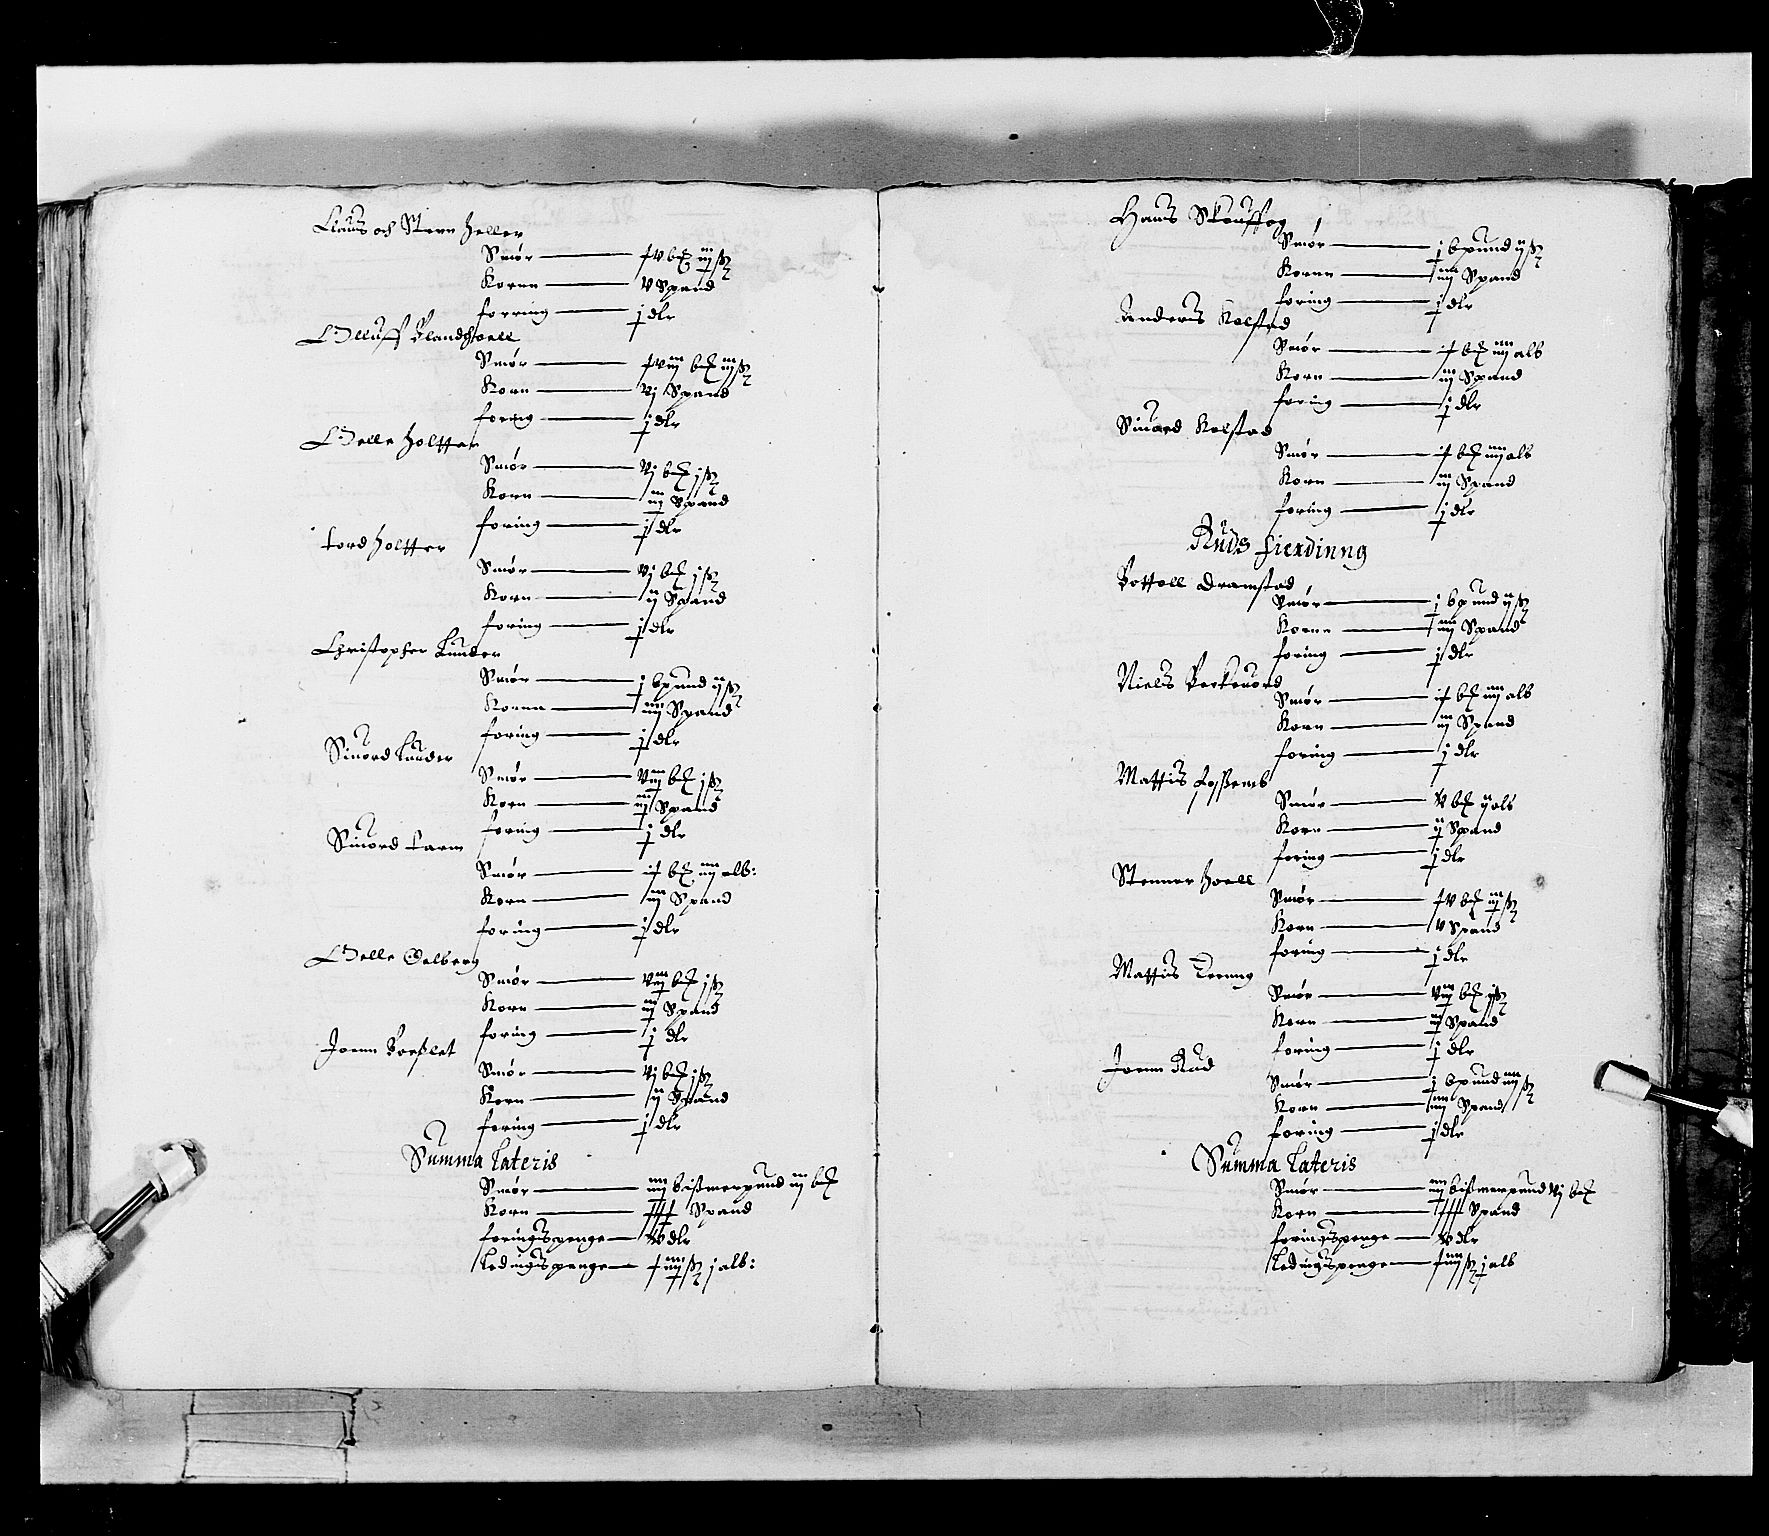 Claus och Steen Heller
Smør — fv bℓ iij ß
Korn — v Spand
forring — j dlr
Olluff
Smør — fviij bℓ iij ß
Korn — vj Spand
foring — j dlr
Olle Holtter
Smør — vj bℓ j ß
Korn — iij Spand
foring — j dlr
Tord Holtter
Smør — vj bℓ j ß
Korn — ij Spand
foring — j dlr
Christopher Lunder
Smør — j bpund ij ß
Kornn — iiij Spand
foring — j dlr
Siuord Lunder
Smør — viij bℓ j ß
Korn — iij Spand
foring — j dlr
Siuord Larm
Smør — if bℓ iiij alb:
Korn — iij Spand
foring — j dlr
Olle Oelberg
Smør — viij bℓ j ß
Korn — iij Spand
foring — j dlr
Joenn
Smør — vj bℓ j ß
Korn — ij Spand
foring — j dlr
Summa Lateris
Smør — iiij bißmerpund iij bℓ
Korn — Spand
foringspenge — dlr
Ledingspenge — f iiij ß j alb:
Hans Skouffog
Smør — j bpund ij ß
Kornn — iiij Spand
foring — j dlr
Anders Kolstad
Smør — if bℓ iiij alb
Korn — iij Spand
foring — j dlr
Siuord Kolstad
Smør — if bℓ iiij alb
Korn — iij Spand
foring — j dlr
Ruds fierdinng
Bottoll Dramstad
Smør — j bpund ij ß
Kornn — iiij Spand
foring — j dlr
Niels
Smør — if bℓ iiij alb
Korn — iij Spand
foring — j dlr
Mattis
Smør — v bℓ ij alb
Korn — ij Spand
foring — j dlr
Stenner Hoell
Smør — fv bℓ iij ß
Korn — v Spand
foring — j dlr
Mattis
Smør — viij bℓ j ß
Korn — iij Spand
foring — j dlr
Joenn Rud
Smør — j bpund iiij ß
Korn — iiij Spand
foring — j dlr
Summa Lateris
Smør — iiij bißmerpund vj bℓ
Korn — Spand
foringspenge — dlr
Ledingspenge — f iiij ß j alb